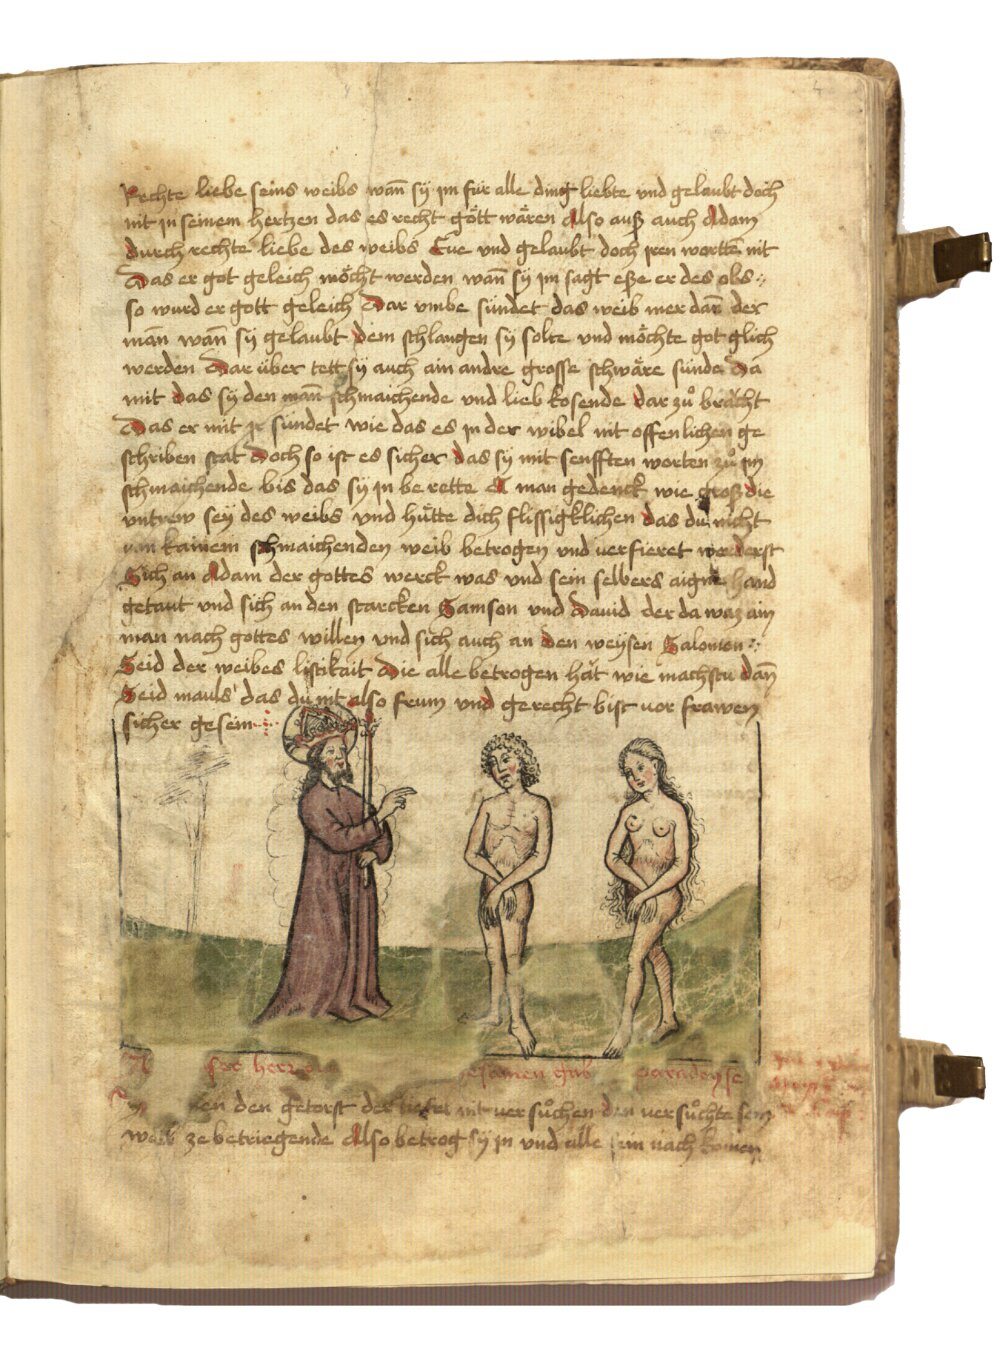 Rechte liebe seins weibs wan̄ sÿ jm für alle ding liebte vnd gelaubt doch
nit jn seinem hertzen das es recht gött wären Also auß auch Adam
durch rechte liebe des weibs Eue vnd gelaubt doch jren wortten̄ nit
Das er got geleich möcht werden wan̄ sÿ jm sagt eße er des obs
so wurd er gott geleich Dar vmbe sündet das weib mer dan̄ der
man̄ wan̄ sÿ gelaubt dem schlangen sÿ solte vnd möchte got glich
werden Dar über tett sÿ auch ain andre grosse schwäre sünde Da
mit das sÿ den man̄ schmaichende vnd lieb kosende dar zuͦ bracht
Das er mit jr sündet wie das es jn der wibel nit offenlichen ge
schriben stat Doch so ist es sicher das sÿ mit senfften worten zuͦ jm
schmaichende bis das sÿ jn be rette A man gedenck wie groß die
vntrew seÿ des weibs vnd hütte dich flissigklichen das du nicht
von kainem schmaichenden weib betrogen vnd verfieret werderst
Sich an Adam der gottes werck was vnd sein selbers aigne hand
getatt vnd sich an den starcken Samson vnd Dauid der da waz ain
man nach gottes willen vnd sich auch an den weÿsen Salomon
Seid der weibes listikait Die alle betrogen hät wie machstu dan̄
Seid mauls das du nit also frum vnd gerecht bist vor frawen
sicher gesein
her
paradeÿse
den getorst der tiefel nit versuͦchen den versuͦchte sein
weib ze betriegende Also betrog sÿ jn vnd alle sin nach komen